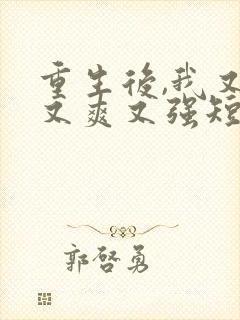 重生後,我又
又爽又强短
郭啓勇